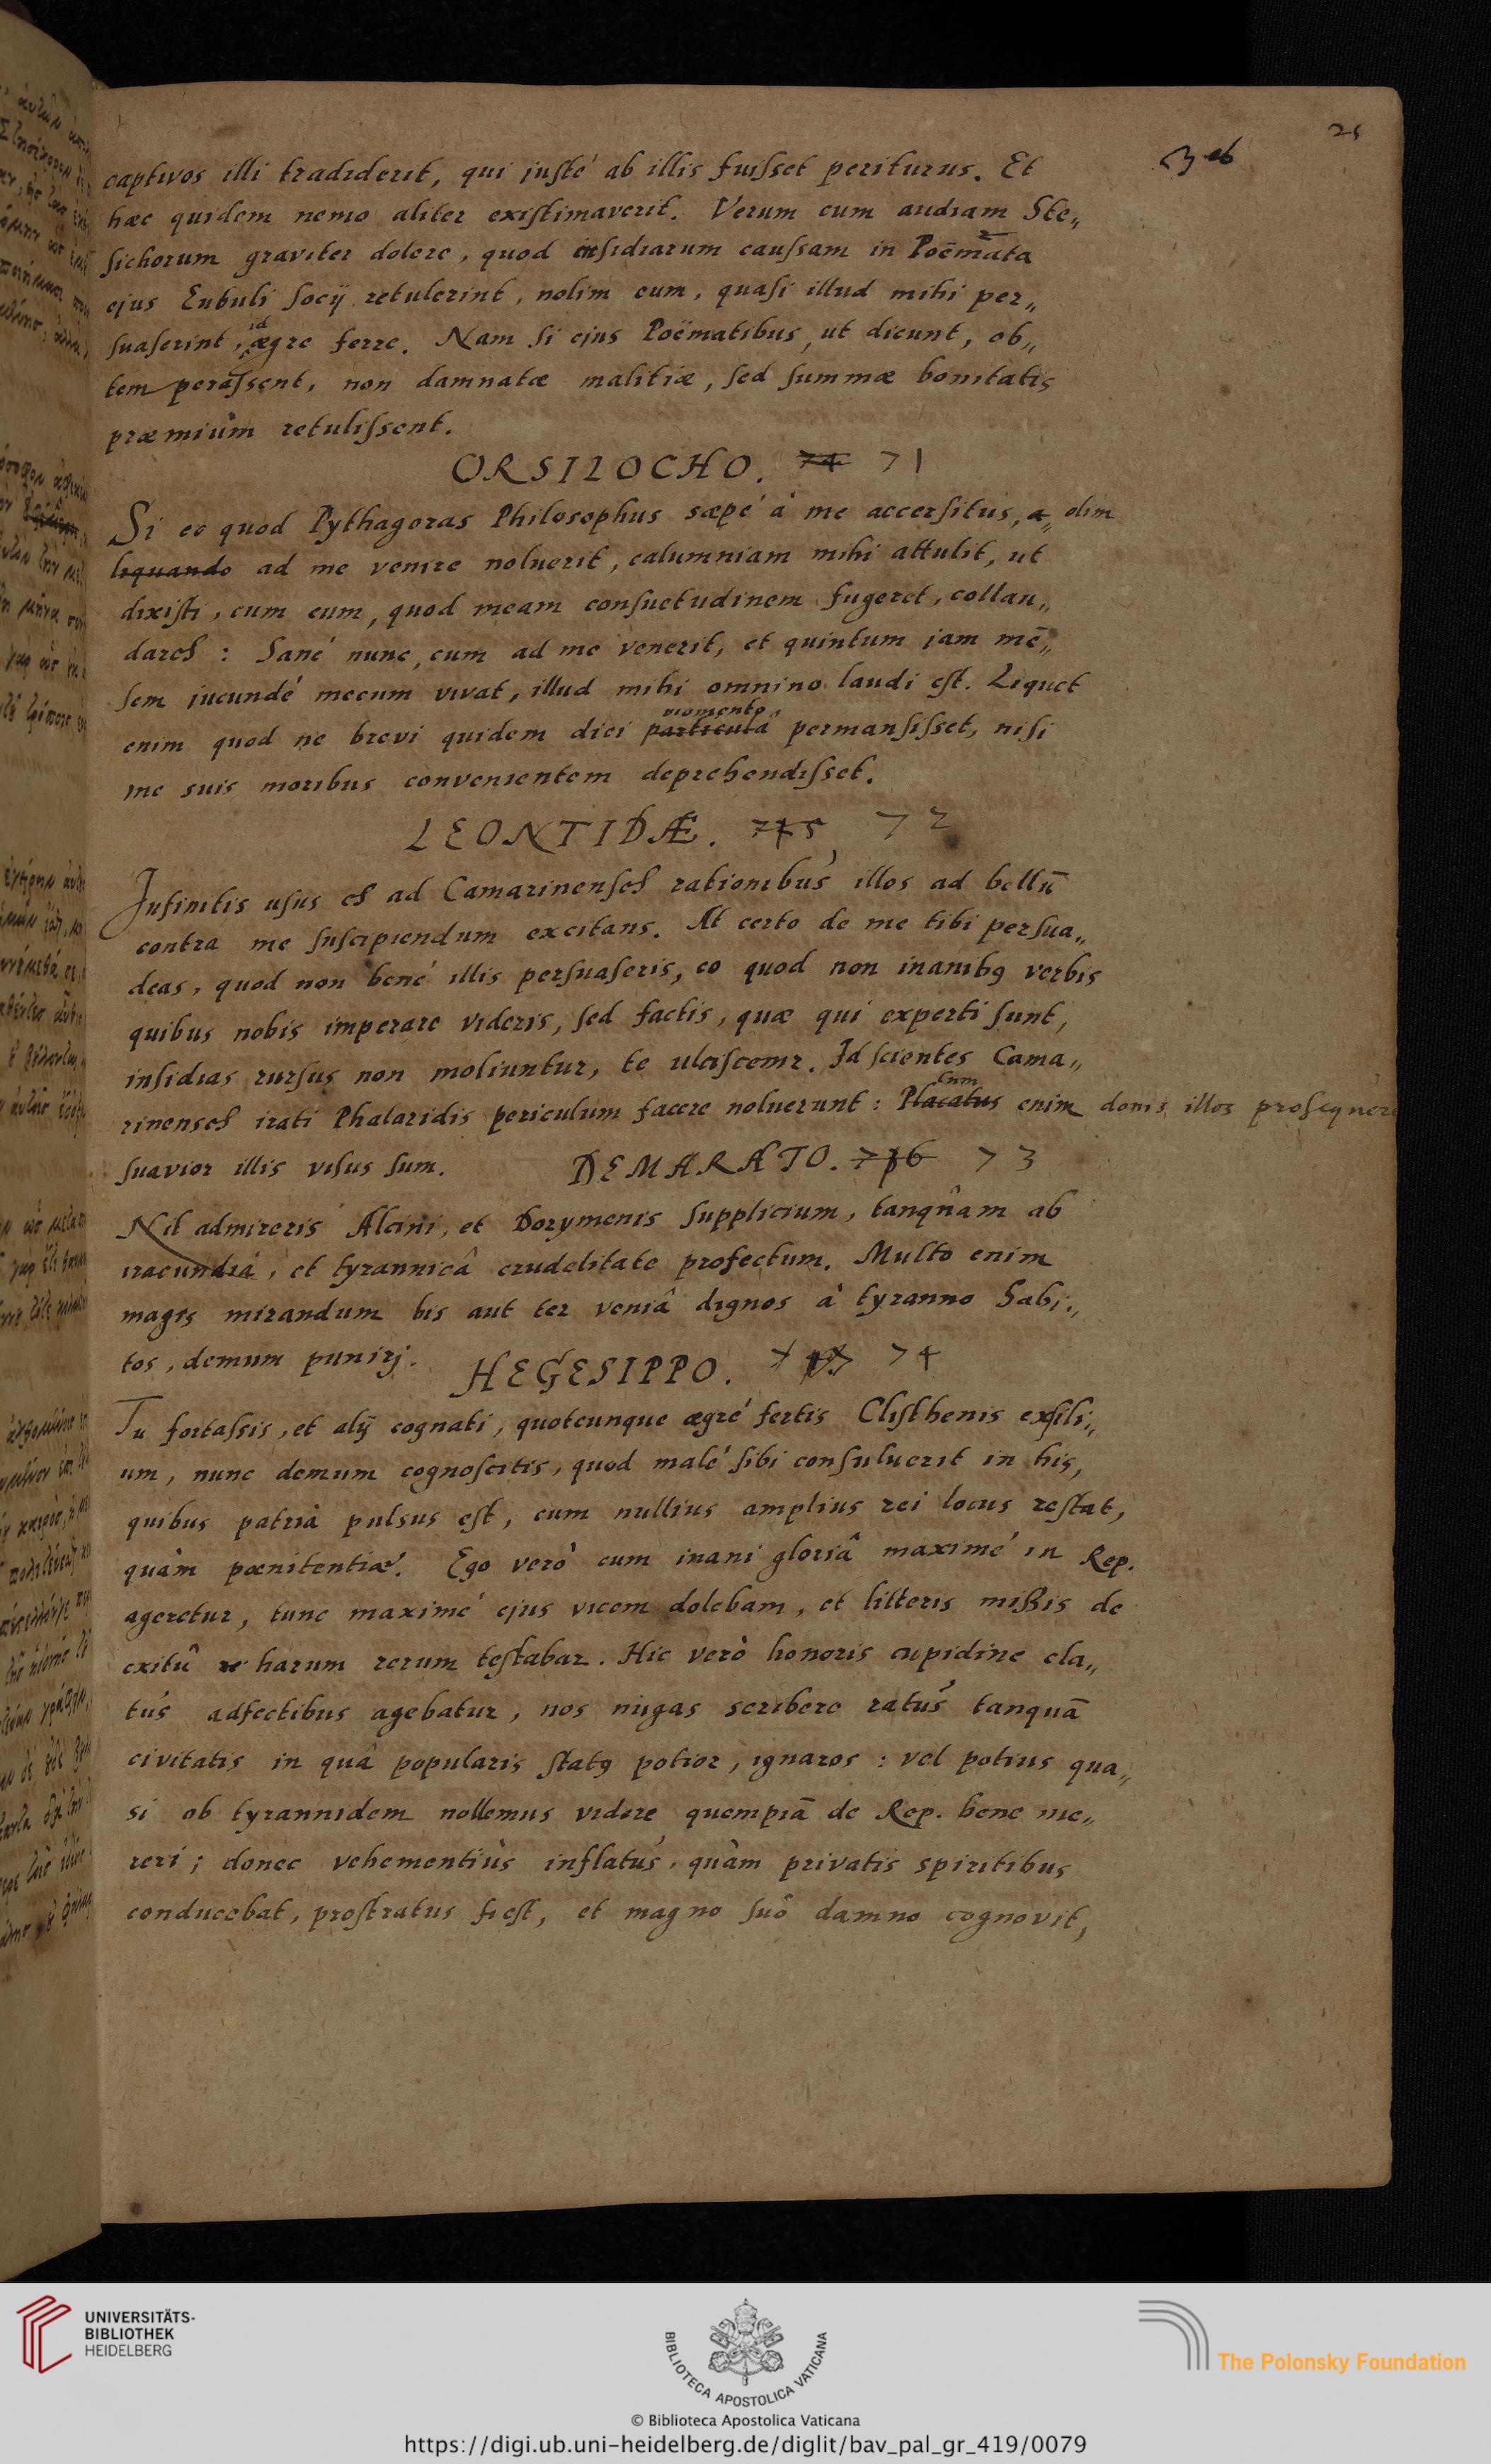 25
captivos illi tradiderit, qui justé ab illis fuisset periturus. Et
hæc quidem nemo aliter existimaverit. Verum cum audiam Ste„
sichorum graviter dolere, quod insidiarum caussam in Poëmata
ejus Eubuli socij retulerint, nolim eum, quasi illud mihi per„
suaserint, id ægre ferre. Nam si ejus Poëmatibus, ut dicunt, ob„
tem perassent, non damnatæ malitiæ, sed summæ bonitatis
præmiùm retulissent.
ORSILOCHO. 74 71
Si eo quod Pythagoras Philosophus sæpé à me accersitus, a„ olim
liquando ad me venire noluerit, calumniam mihi attulit, ut
dixisti, cum eum, quod meam consuetudinem fugeret, collau„
dares : Sané nunc, cum ad me venerit, et quintum jam mē„
sem jucundé mecum vivat, illud mihi omnino laudi est. Liquet
enim quod ne brevi quidem diei particulâ momento permansisset, nisi
me suis moribus convenientem deprehendisset.
LEONTIDÆ. 75 72
Infinitis usus es ad Camarinenses rationibus illos ad bellū
contra me suscipiendum excitans. At certo de me tibi persua„
deas, quod non bené illis persuaseris, eo quod non inanibꝰ verbis
quibus nobis imperare videris, sed factis, quæ qui experti sunt,
insidias rursus non moliuntur, te ulciscemr. Id scientes Cama„
rinenses irati Phalaridis periculum facere noluerunt : Placatus Cum enim donis illos prosequerer
suavior illis visus sum. DEMARATO. 76 73
Nil admireris Alcini, et Dorymenis supplicium, tanqûam ab
iracundiâ, et tyrannicâ crudelitate profectum. Multo enim
magis mirandum bis aut ter veniâ dignos à tyranno habi„
tos, demum punirj. HEGESIPPO. 74
Tu fortassis, et alij cognati, quotcunque ægré fertis Clisthenis exsili„
um, nunc demum cognoscitis, quod malé sibi consuluerit in his,
quibus patriâ pulsus est, cum nullius amplius rei locus restat,
quàm pœnitentiæ. Ego verò cum inani gloriâ maximé in Rep.
ageretur, tunc maximé ejus vicem dolebam, et litteris missis de
exitû harum rerum testabar. Hic verò honoris cupidine ela„
tus adfectibus agebatur, nos nugas scribere ratus tanquā
civitatis in quâ popularis statꝰ potior, ignaros : vel potius qua„
si ob tyrannidem nollemus videre quempiā de Rep. bene me„
reri ; donec vehementiùs inflatus, quàm privatis spiritibus
conducebat, prostratus est, et magno suô damno cognovit,
UNIVERSITÄTS-
BIBLIOTHEK
HEIDELBERG
BIBLIOTECA APOSTOLICA VATICANA
The Polonsky Foundation
© Biblioteca Apostolica Vaticana
https://digi.ub.uni-heidelberg.de/diglit/bav_pal_gr_419/0079